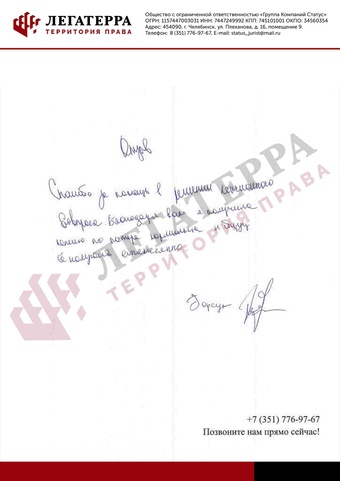 ЛЕГАТЕРРА
ТЕРРИТОРИЯ ПРАВА
Общество с ограниченной ответственностью «Группа Компаний Статус»
ОГРН: 1157447003031 ИНН: 7447249992 КПП: 745101001 ОКПО: 34560354
Адрес: 454090, г. Челябинск, ул. Плеханова, д. 16, помещение 9.
Телефон: 8 (351) 776-97-67, E-mail: status_jurist@mail.ru
Отзыв
Спасибо за помощь в решении пенсионного
вопроса. Благодаря вам я получила
пенсию по потере кормильца и буду
её получать ежемесячно
ЛЕГАТЕРРА
ТЕРРИТОРИЯ ПРАВА
+7 (351) 776-97-67
Позвоните нам прямо сейчас!